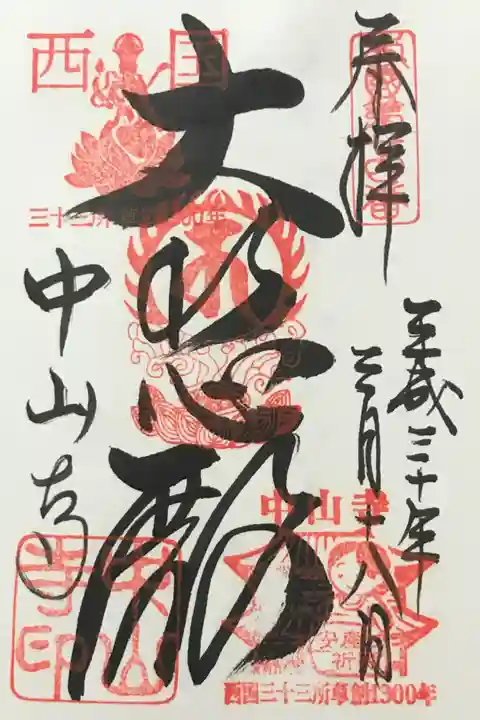 奉拝
平成三十年
月十八日
大悲殿
中山寺
西国
三十三所草創1300年
中山寺
安産
祈願
西国三十三所草創1300年
中山寺印